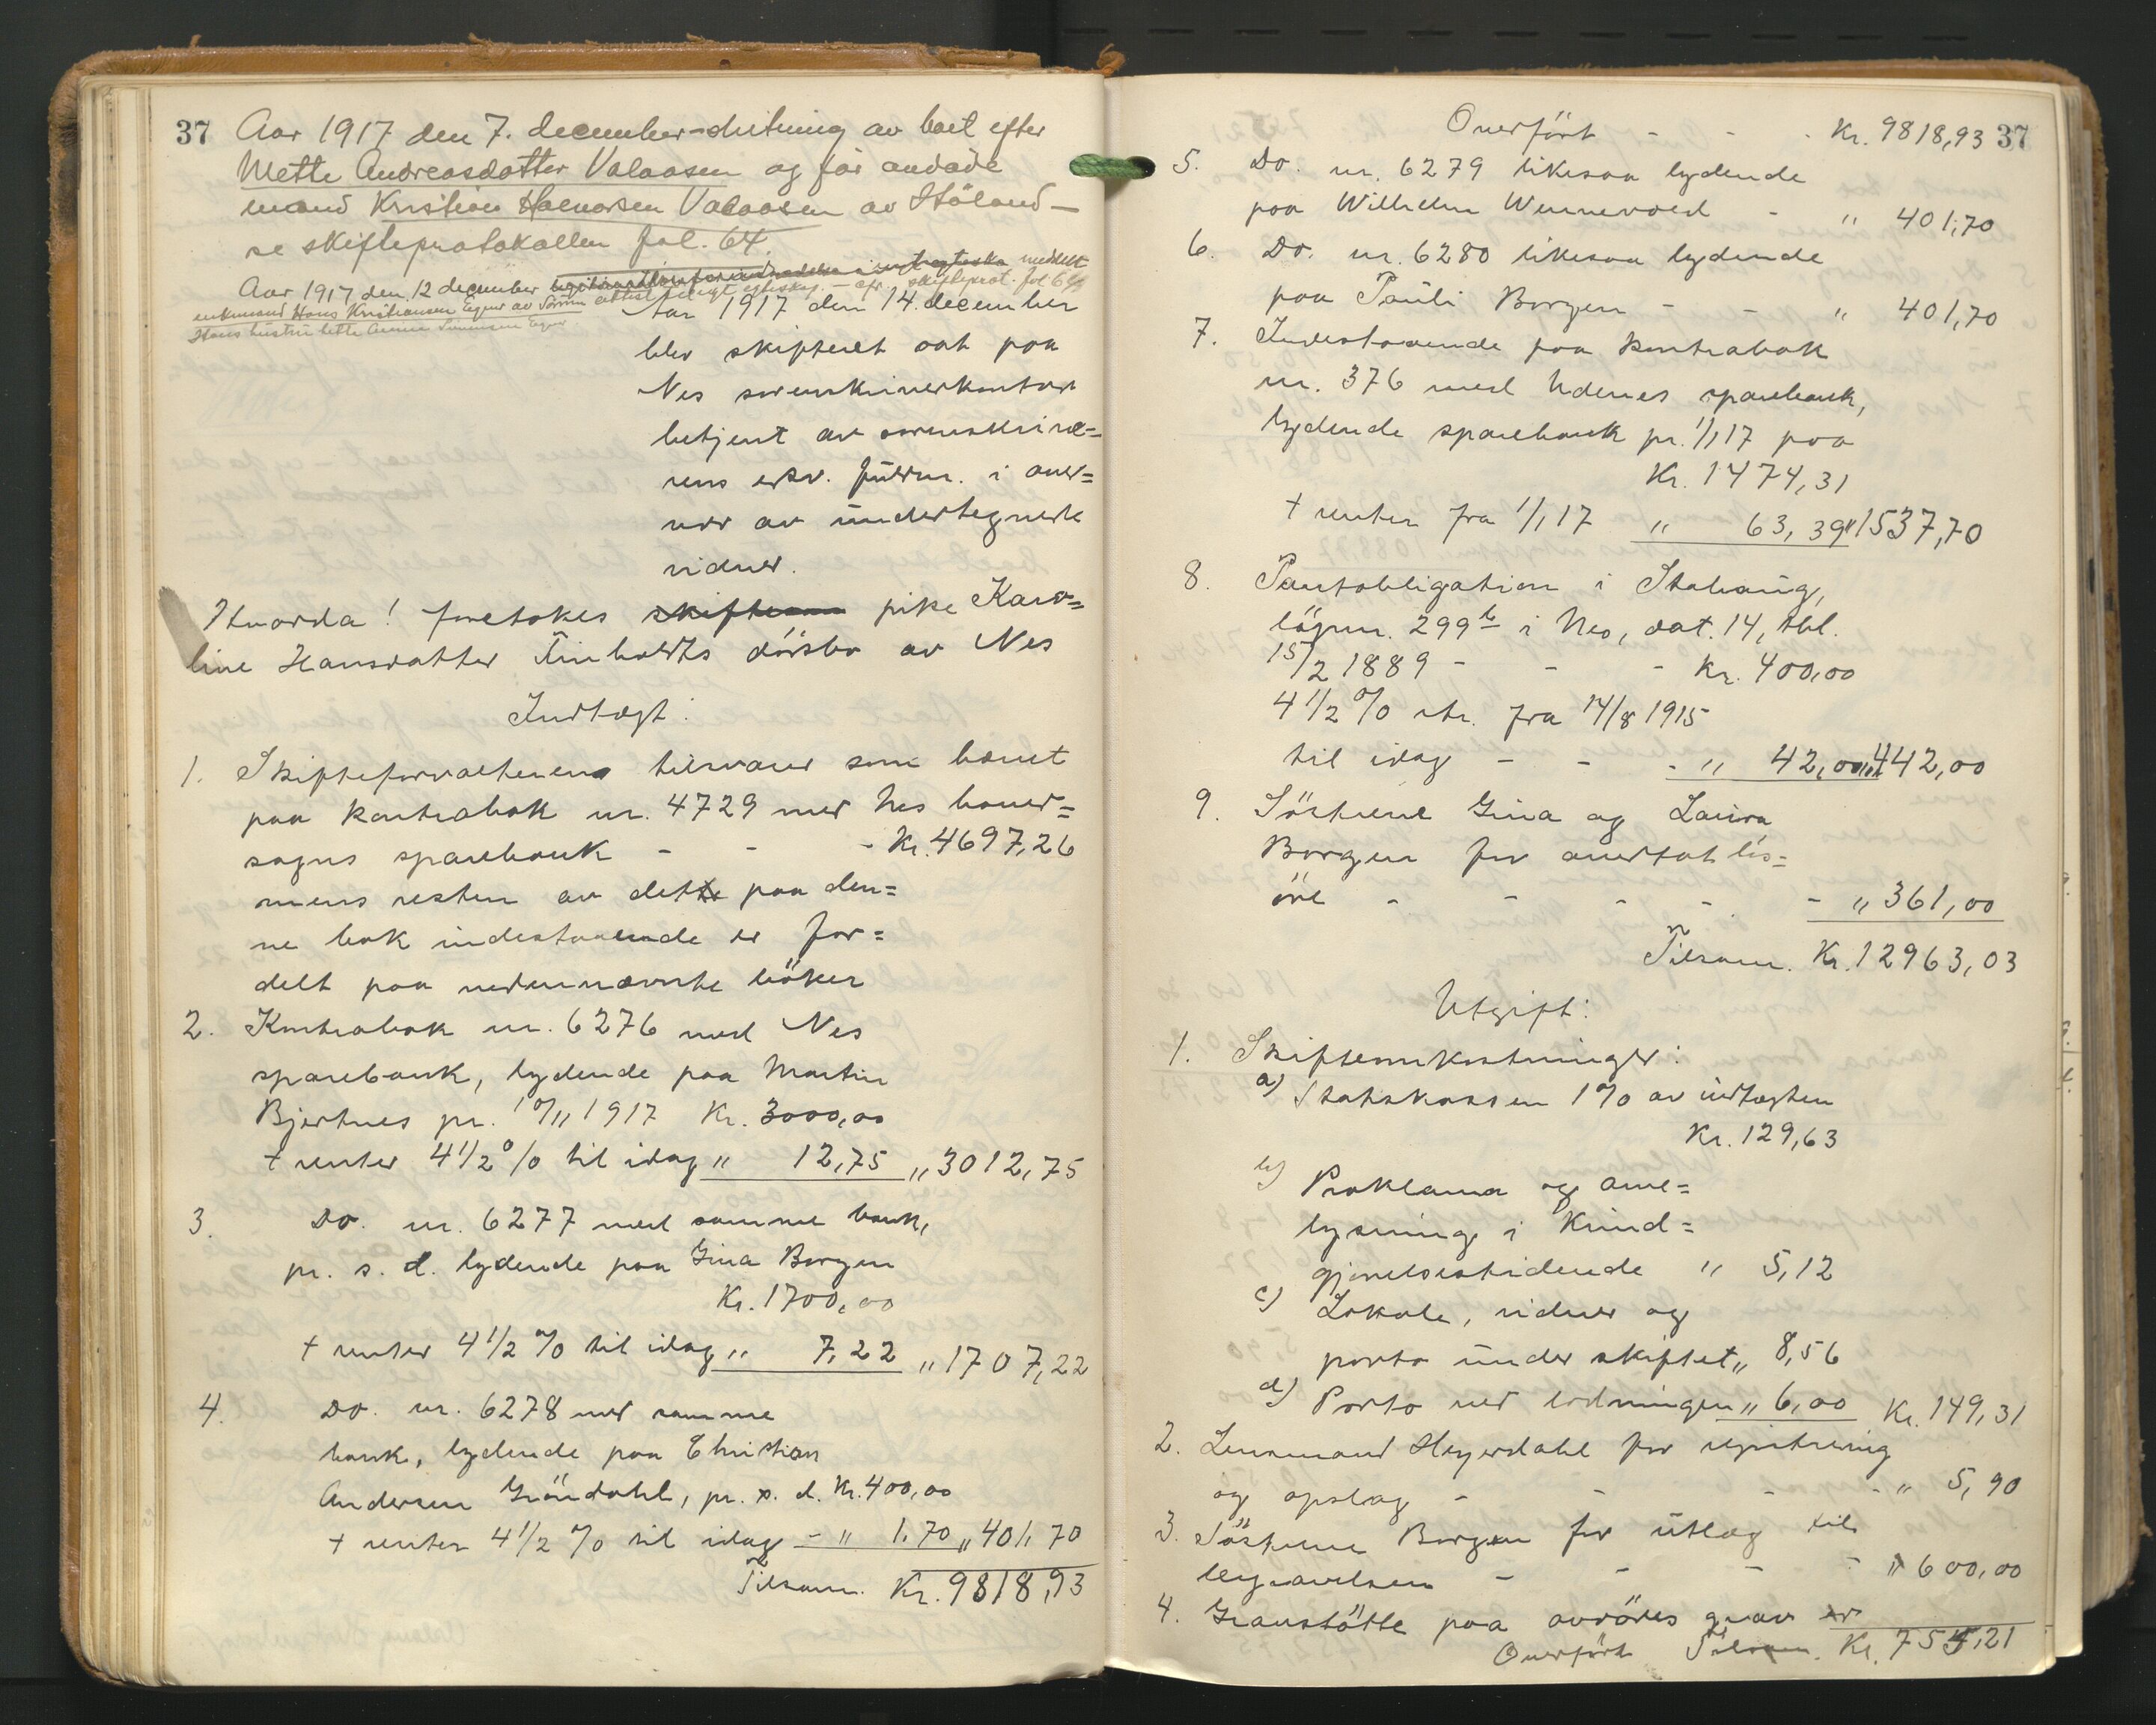 37 Aar 1917 den 7. december - slutning av boet efter
Mette Andreasdatter Valaasen og før avdøde
mand Kristian Halvorsen Valaasen av Høland -
se skifteprotokollen fol. 64.
Aar 1917 den 12 december meddelt
enkemand Hans Kristiansen av attest - cfr. skifteprot. fol 64
Hans hustru hette
Aar 1917 den 14. december
blev skifteret sat paa
Nes sorenskriverkontor
betjent av sorenskrive=
rens edsv. fuldm. i over=
vær av undertegnede
vidner.
Hvorda! foretokes skifteam pike Karo=
line Hansdatter dödsbo av Nes
Indtægt:
1. Skifteforvalterens tilsvarer som hævet
paa kontrabok nr. 4729 med Nes hoved=
sogns sparebank - - - Kr. 4697,26
mens resten av dette paa den=
ne bok indestaaende er for=
delt paa nedennævnte böker
2. Kontrabok nr. 6276 med Nes
sparebank, lydende paa Martin
Bjertnes pr. 10/11 1917 Kr. 3000,00
+ renter 4 1/2 % til idag " 12,75 " 3012,75
3. Do. nr. 6277 med samme bank,
pr. s. d. lydende paa Gina Borgen
Kr. 1700,00
+ renter 4 1/2 % til idag " 7,22 " 1707,22
4. Do. nr. 6278 med samme
bank, lydende paa Christian
Andersen Gröndahl, pr. s. d. Kr. 400,00
+ renter 4 1/2 % til idag - " 1,70 " 401,70
Tilsam. Kr. 9818,93
Overfört - - - Kr. 9818,93 37
5. Do. nr. 6279 likesaa lydende
paa Wilhelm Wennevold - " 401,70
6. Do. nr. 6280 likesaa lydende
paa Pauli Borgen - - " 401,70
7. Indestaaende paa kontrabok
nr. 376 med Udenes sparebank,
lydende sparebank pr. 1/1 17 paa
Kr. 1474,31
+ renter fra 1/1 17 " 63,39 " 1537,70
8. Pantobligation i Stabaug,
löpnr. 299 b i Nes, dat. 14, tbl.
15/2 1889 - - - Kr. 400,00
4 1/2 % rtr. fra 14/8 1915
til idag - - - " 42,00 " 442,00
9. Söstrene Gina og Laura
Borgen for overtat lös=
öre - - - - - " 361,00
Tilsam. Kr. 12963,03
Utgift:
1. Skifteomkostninger:
a) Statskassen 1 % av indtægten
Kr. 129,63
b) Proklama og ave=
lysning i Kund=
gjørelsestidende " 5,12
c) Lokale, vidner og
porto under skiftet " 8,56
d) Porto ved lodningen " 6,00 Kr. 149,31
2. Lensmand Heyerdahl for registrering
og opslag - - - - " 5,90
3. Söstrene Borgen for utlæg til
begravelsen - - - - " 600,00
4. Gravstötte paa avdödes grav er
Overfört Tilsam. Kr. 755,21